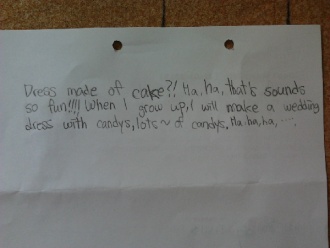 Dress made of cake?! Ha, ha, that's sounds
so fun!!!! When I grow up, I will make a wedding
dress with candys, lots~ of candys. Ha, ha, ha, ....